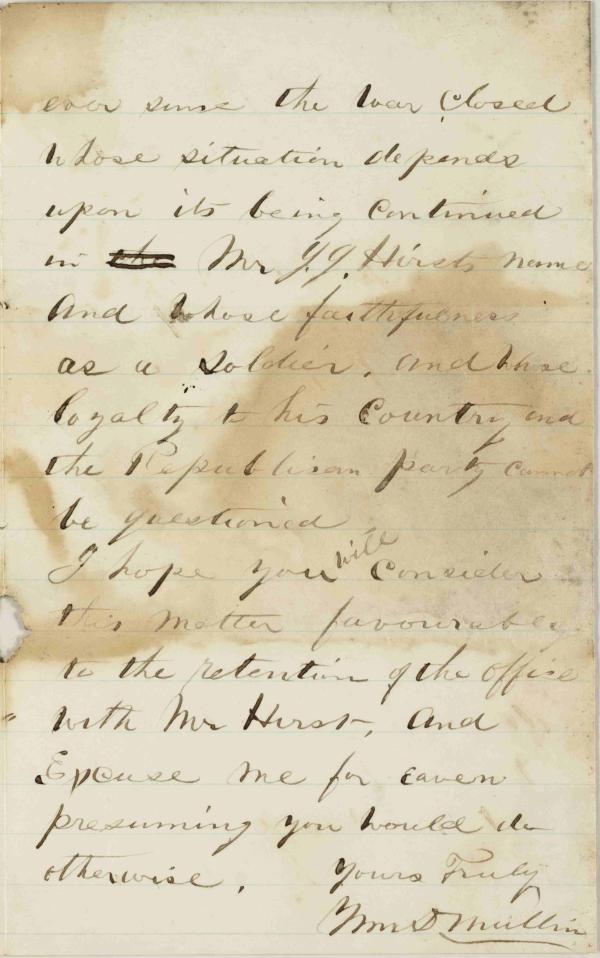 ever since the war closed
whose situation depends
upon its being continued
in the Mr J. J. Hirsts name
And whose faithfulness
as a soldier, and whose
loyalty to his Country and
the Republican party cannot
be questioned
I hope you will consider
this matter favourabley
to the retention of the office
with Mr Hirst, and
Excuse me for eaven
presuming you would do
otherwise. Yours Truly
Wm D Mullin